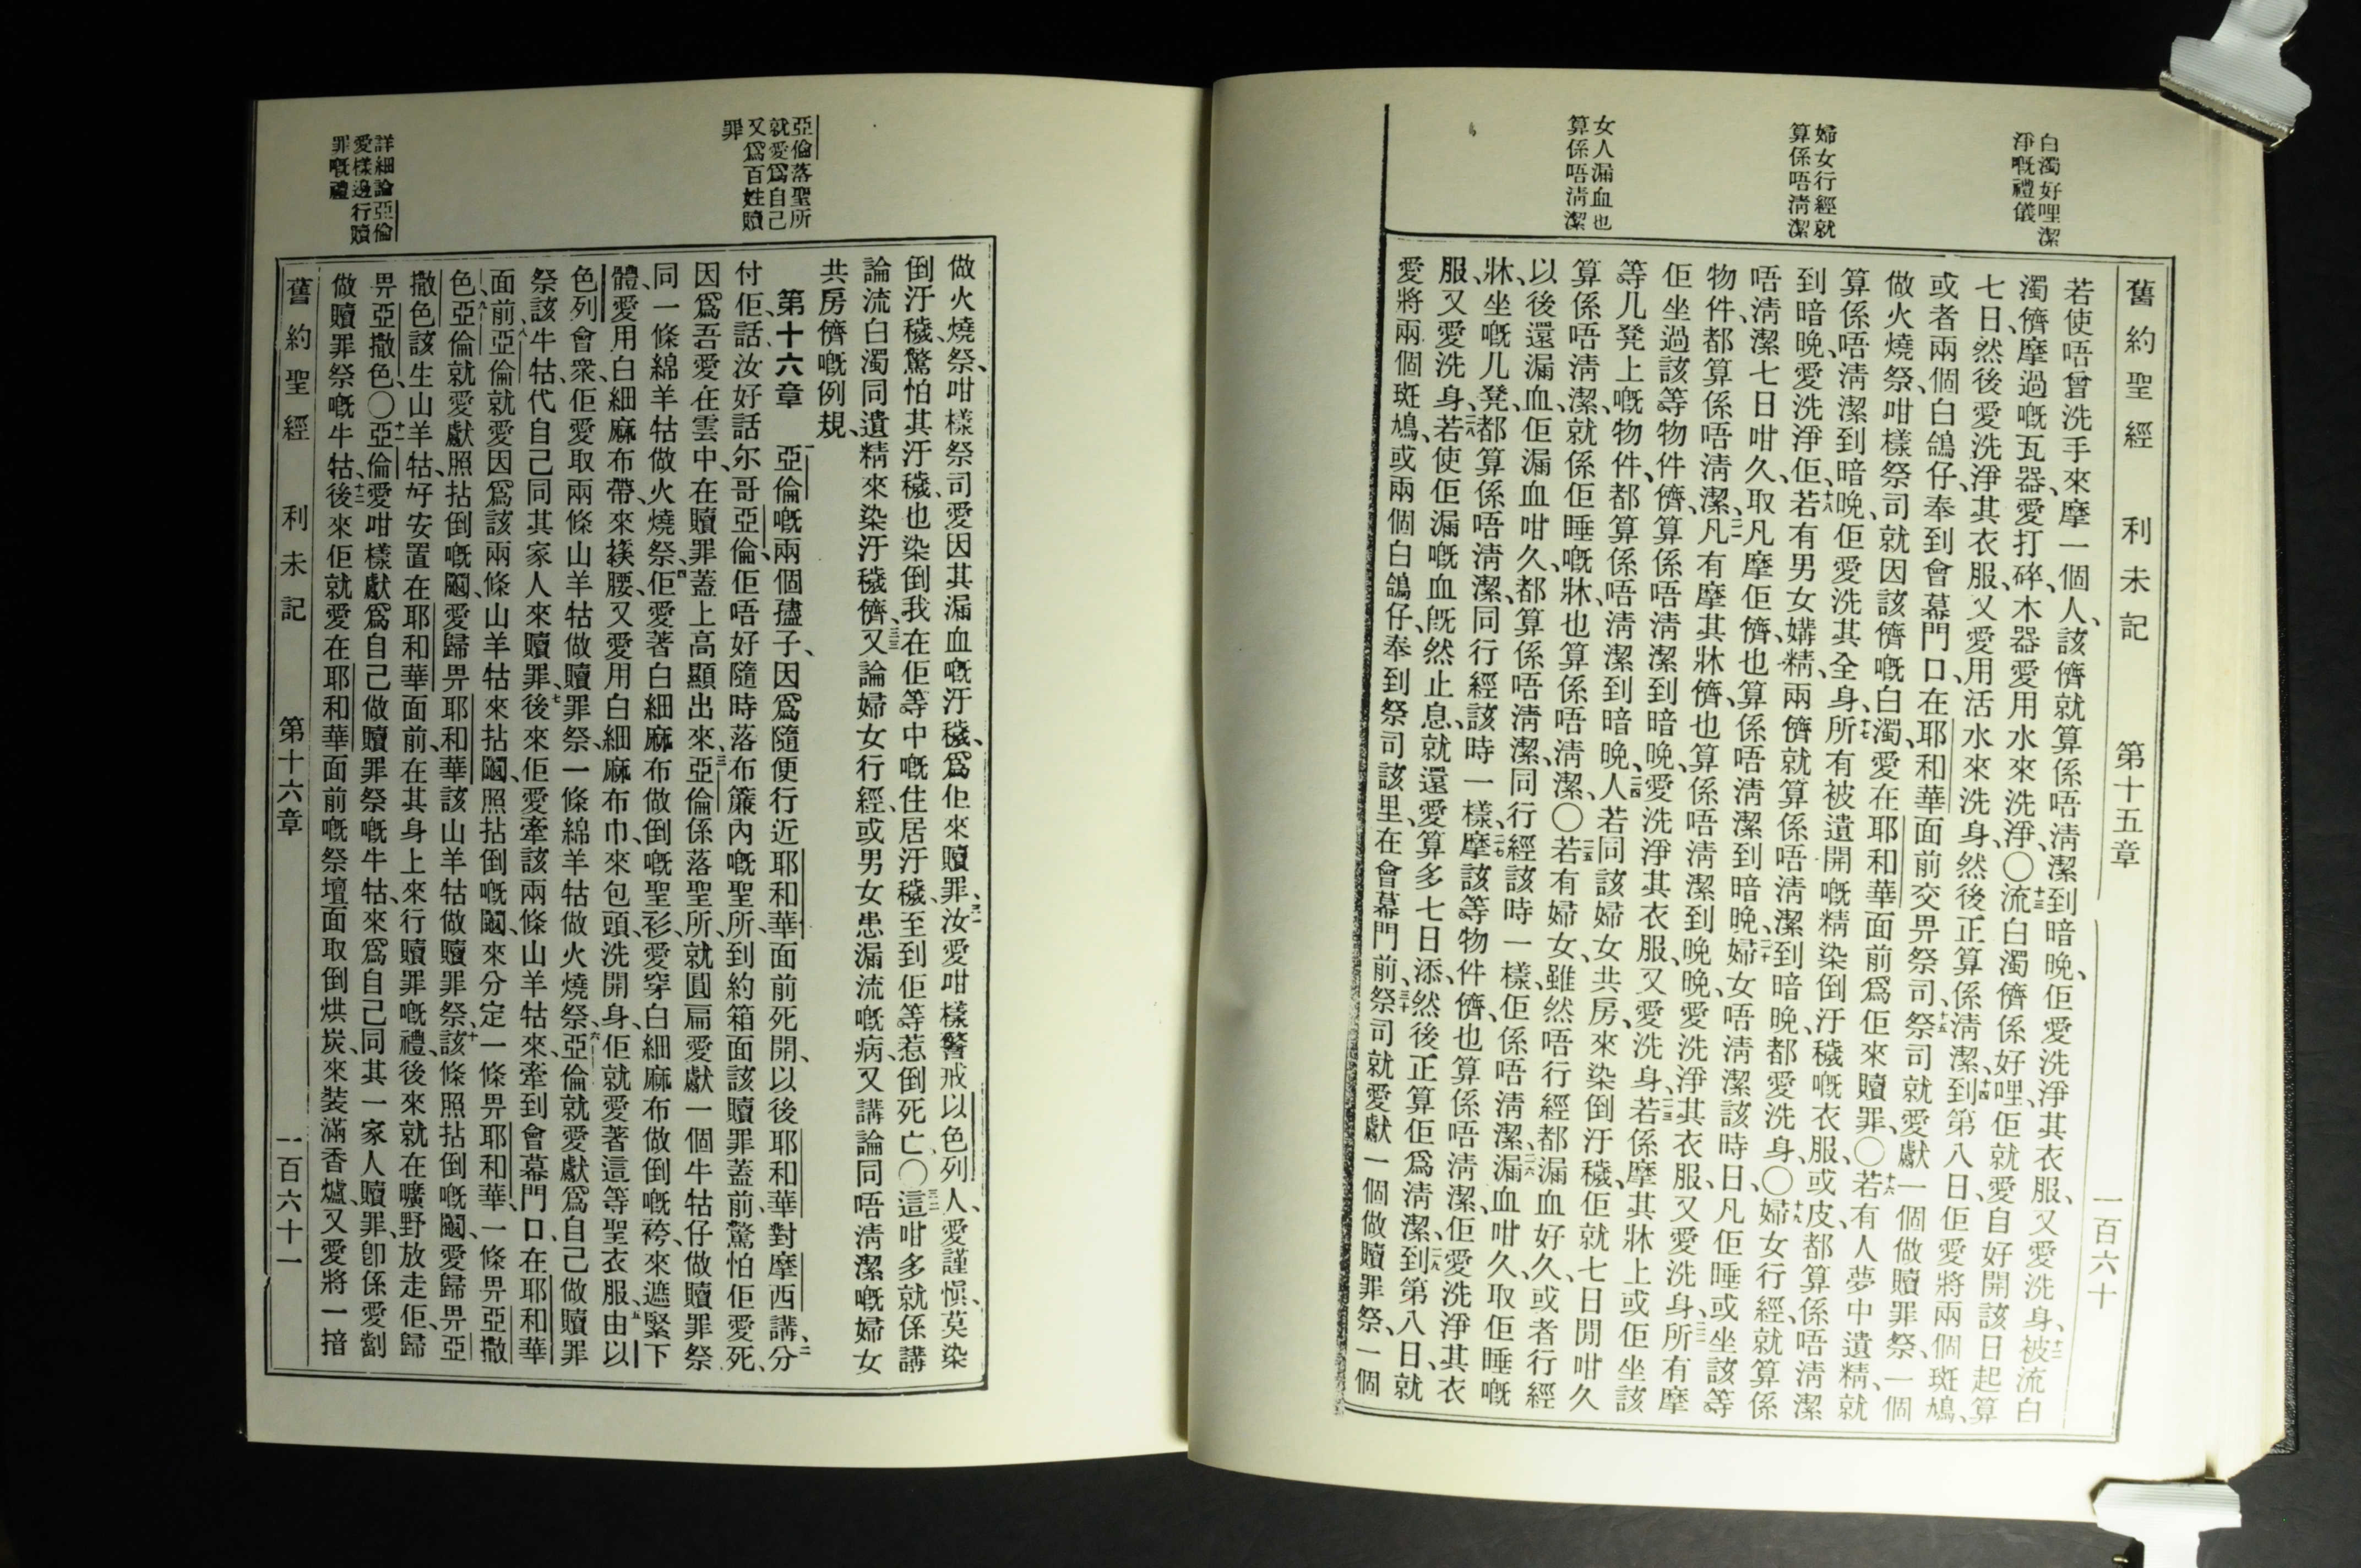 舊約聖經 利未記 第十五章 一百六十
白濁好哩潔
淨嘅禮儀
婦女行經就
算係唔清潔
女人漏血也
算係唔清潔
若使唔曾洗手來摩一個人、該儕就算係唔清潔到暗晚、佢愛洗淨其衣服、又愛洗身、十二被流白
濁儕摩過嘅瓦器、愛打碎、木器愛用水來洗淨、〇十三流白濁儕係好哩、佢就愛自好開該日起算
七日、然後愛洗淨其衣服、又愛用活水來洗身、然後正算係清潔、十四到第八日、佢愛將兩個斑鳩、
或者兩個白鴿仔、奉到會幕門口、在耶和華面前交畀祭司、十五祭司就愛獻一個做贖罪祭、一個
做火燒祭、咁樣祭司就因該儕嘅白濁、愛在耶和華面前爲佢來贖罪、〇十六若有人夢中遺精、就
算係唔清潔到暗晚、佢愛洗其全身、十七所有被遺開嘅精染倒汙穢嘅衣服、或皮、都算係唔清潔
到暗晚、愛洗淨佢、十八若有男女媾精、兩儕就算係唔清潔、到暗晚、都愛洗身、〇十九婦女行經、就算係
唔清潔七日咁久、取凡摩佢儕、也算係唔清潔到暗晚、二十婦女唔清潔該時日、凡佢睡或坐該等
物件、都算係唔清潔、二一凡有摩其牀儕、也算係唔清潔到晚晚、愛洗淨其衣服、又愛洗身、二二所有摩
佢坐過該等物件儕、算係唔清潔到暗晚、愛洗淨其衣服、又愛洗身、二三若係摩其牀上或佢坐該
等几凳上嘅物件、都算係唔清潔到暗晚、二四人若同該婦女共房、來染倒汙穢、佢就七日間咁久
算係唔清潔、就係佢睡嘅牀、也算係唔清潔、〇二五若有婦女、雖然唔行經都漏血好久、或者行經
以後還漏血、佢漏血咁久、都算係唔清潔、同行經該時一樣、佢係唔清潔、二六漏血咁久、取佢睡嘅
牀、坐嘅几凳、都算係唔清潔、同行經該時一樣、二七摩該等物件儕、也算係唔清潔、佢愛洗淨其衣
服、又愛洗身、二八若使佢漏嘅血旣然止息、就還愛算多七日添、然後正算佢爲清潔、二九到第八日、就
愛將兩個斑鳩、或兩個白鴿仔、奉到祭司該里、在會幕門前、三十祭司就愛獻一個做贖罪祭、一個
做火燒祭、咁樣祭司愛因其漏血嘅汙穢、爲佢來贖罪、三一汝愛咁樣警戒以色列人、愛謹愼、莫染
倒汙穢、驚怕其汙穢、也染倒我在佢等中嘅住居汙穢、至到佢等惹倒死亡、〇三二這咁多就係講
論流白濁同遺精來染汙穢儕、三三又論婦女行經、或男女患漏流嘅病、又講論同唔清潔嘅婦女
共房儕嘅例規、
亞倫落聖所
就愛爲自己
又爲百姓贖
罪
第十六章 一亞倫嘅兩個孻子、因爲隨便行近耶和華面前死開、以後耶和華對摩西講、二分
付佢話、汝好話尔哥亞倫、佢唔好隨時落布簾內嘅聖所、到約箱面該贖罪蓋前、驚怕佢愛死、
因爲吾愛在雲中、在贖罪蓋上高顯出來、三亞倫係落聖所、就圓扁愛獻一個牛牯仔做贖罪祭
同一條綿羊牯做火燒祭、四佢愛著白細麻布做倒嘅聖衫、愛穿白細麻布做倒嘅袴、來遮緊下
體、愛用白細麻布帶、來䌸腰、又愛用白細麻布巾、來包頭、洗開身、佢就愛著這等聖衣服、五由以
色列會衆、佢愛取兩條山羊牯做贖罪祭、一條綿羊牯做火燒祭、六亞倫就愛獻爲自己做贖罪
祭該牛牯、代自己同其家人來贖罪、七後來佢愛牽該兩條山羊牯來、牽到會幕門口、在耶和華
面前、八亞倫就愛因爲該兩條山羊牯來拈鬮、照拈倒嘅鬮、來分定一條畀耶和華、一條畀亞撒
色、九亞倫就愛獻照拈倒嘅鬮、愛歸畀耶和華該山羊牯做贖罪祭、十該條照拈倒嘅鬮、愛歸畀亞
撒色該生山羊牯、好安置在耶和華面前、在其身上來行贖罪嘅禮、後來就在曠野放走佢、歸
畀亞撒色、〇十一亞倫愛咁樣獻爲自己做贖罪祭嘅牛牯、來爲自己同其一家人贖罪、卽係愛劏
做贖罪祭嘅牛牯、十二後來佢就愛在耶和華面前嘅祭壇面取倒烘炭、來裝滿香爐、又愛將一揞
詳細論亞倫
愛樣邊行贖
罪嘅禮
舊約聖經 利未記 第十六章 一百六十一